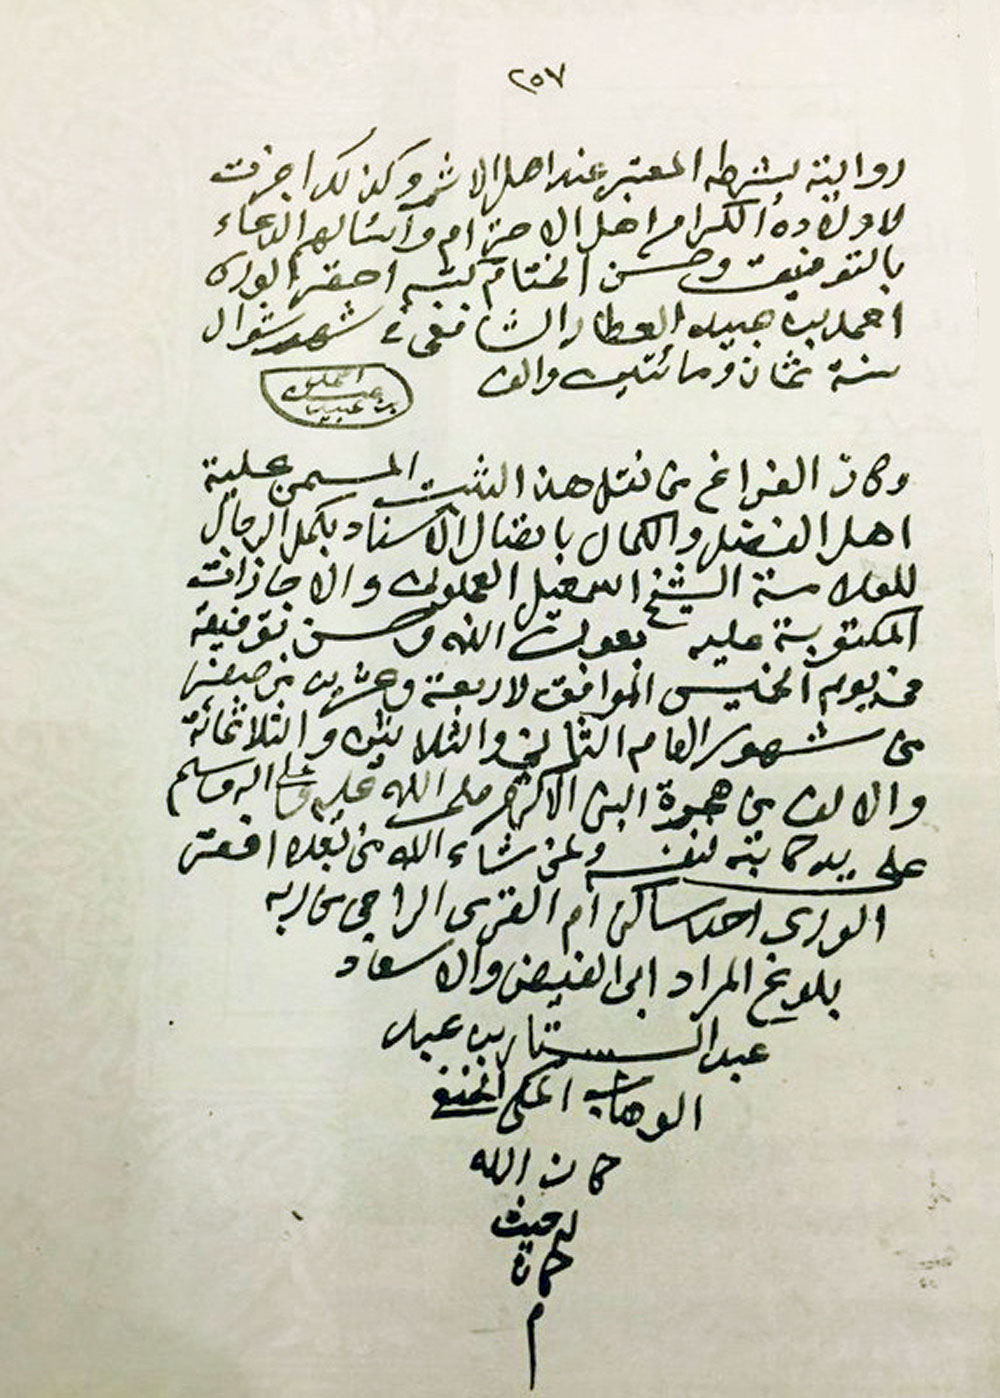 ٢٥٧
روايته بشرطه المعتبر عند اهل الاثر وكذلك اجزت
لاولاده الكرام اهل الاحترام وآسئالهم الدعاء
بالتوفيق وحسن الختام كتبه احقر الورى
احمد بن عبيد العطار الشافعى فى شهر شوال
سنة ثمان ومائتين والف
وكان الفراغ من نقل هذا الثبت المسمى حلية
اهل الفضل والكمال باتصال الاسناد بكمل الرجال
للعلامة الشيخ اسمعيل العجلونى والاجازات
المكتوبة عليه بعون الله وحسن توفيقه
فى يوم الخميس الموافق لاربعة وعشرين من صفر
من شهور العام الثانى والثلاثين والثلاثمائة
والالف من هجرة النبى الاكرم صلى الله عليه وعلى اله وسلم
على يد كاتبه لنفسه ولمن شاء الله من بعده افقر
الورى احد ساكن ام القرى الراجى من ربه
بلوغ المراد ابى الفيض والاسعاد
عبد الستار بن عبد
الوهاب المكى الحنفى
كان الله
له حيث
كان
م